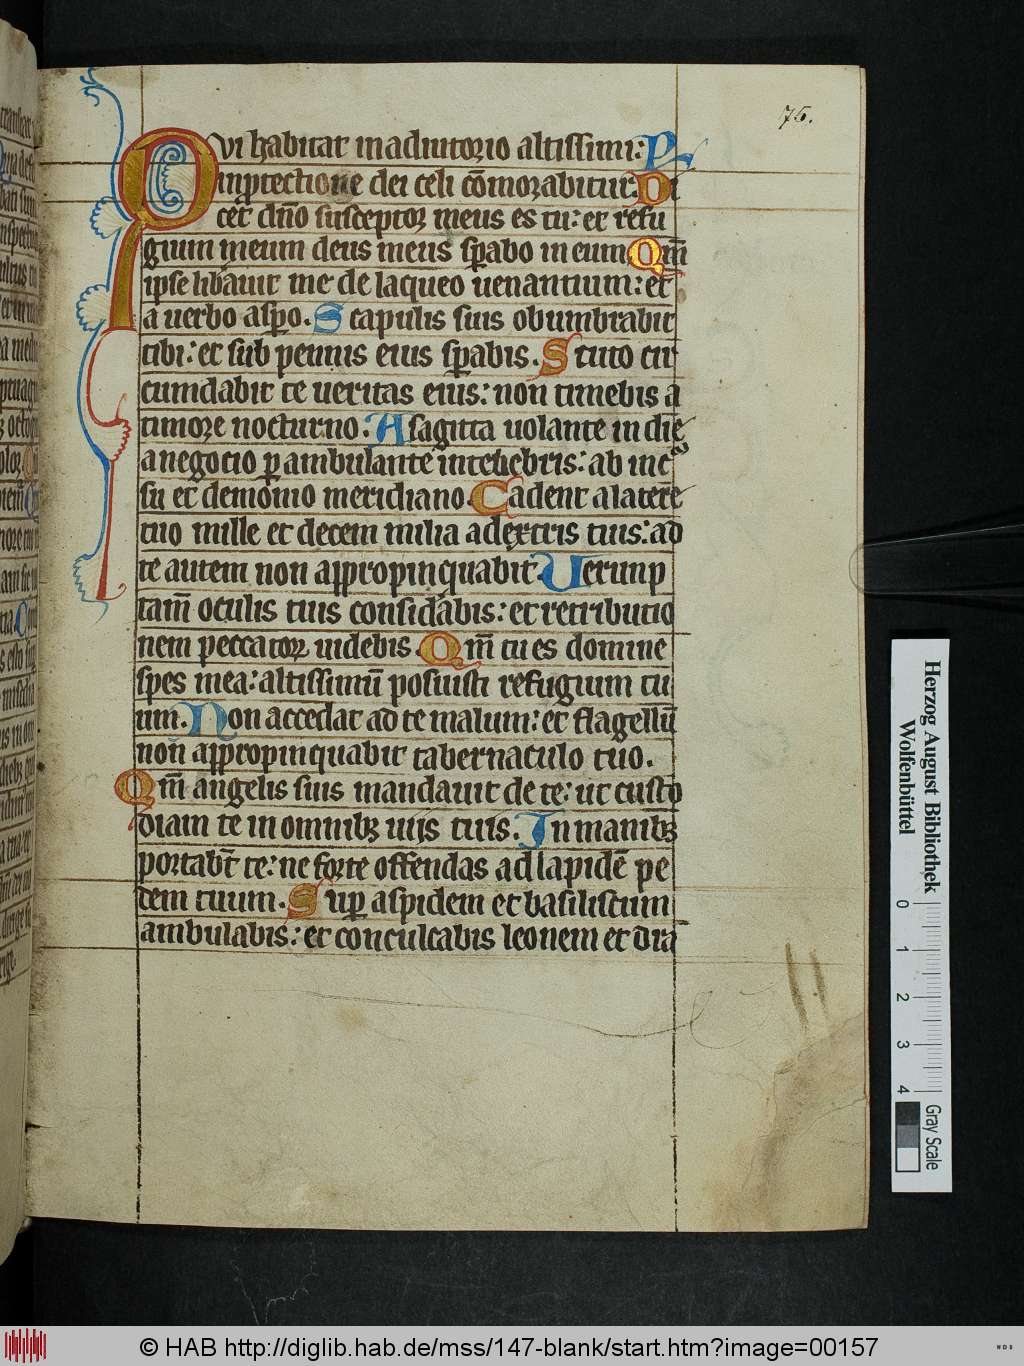 75.
Qvi habitat in adiutorio altissimi:
in ꝓtectione dei celi cōmorabitur. Di
cet dn̄o susceptor meus es tu: et refu
gium meum deus meus sꝑabo in eum. Qm̄
ipse libāuit me de laqueo uenantium: et
a uerbo asꝑo. Scapulis suis obumbrabit
tibi: et sub pennis eius sꝑabis. Scuto cir
cumdabit te ueritas eius: non timebis a
timore nocturno: A sagitta uolante in die
a negocio ꝑambulante in tenebris: ab incᵘ
su et demonio meridiano. Cadent a latere
tuo mille et decem milia a dextris tuis: ad
te autem non appropinquabit. Uerunp
tam̄ oculis tuis considābis: et retributio
nem peccatorꝝ uidebis. Qm̄ tu es domine
spes mea: altissimū posuisti refugium tu
um. Non accedat ad te malum: et flagellū
non appropinquabit tabernaculo tuo.
Qm̄ angelis suis mandauit de te: ut custo
diam te in omnibꝫ uijs tuis. In manibꝫ
portab̄t te: ne forte offendas ad lapidē pe
dem tuum. Suꝑ aspidem et basiliscum
ambulabis: et conculcabis leonem et dra
Herzog August Bibliothek
Wolfenbüttel
0 1 2 3 4
Gray Scale
© HAB http://diglib.hab.de/mss/147-blank/start.htm?image=00157